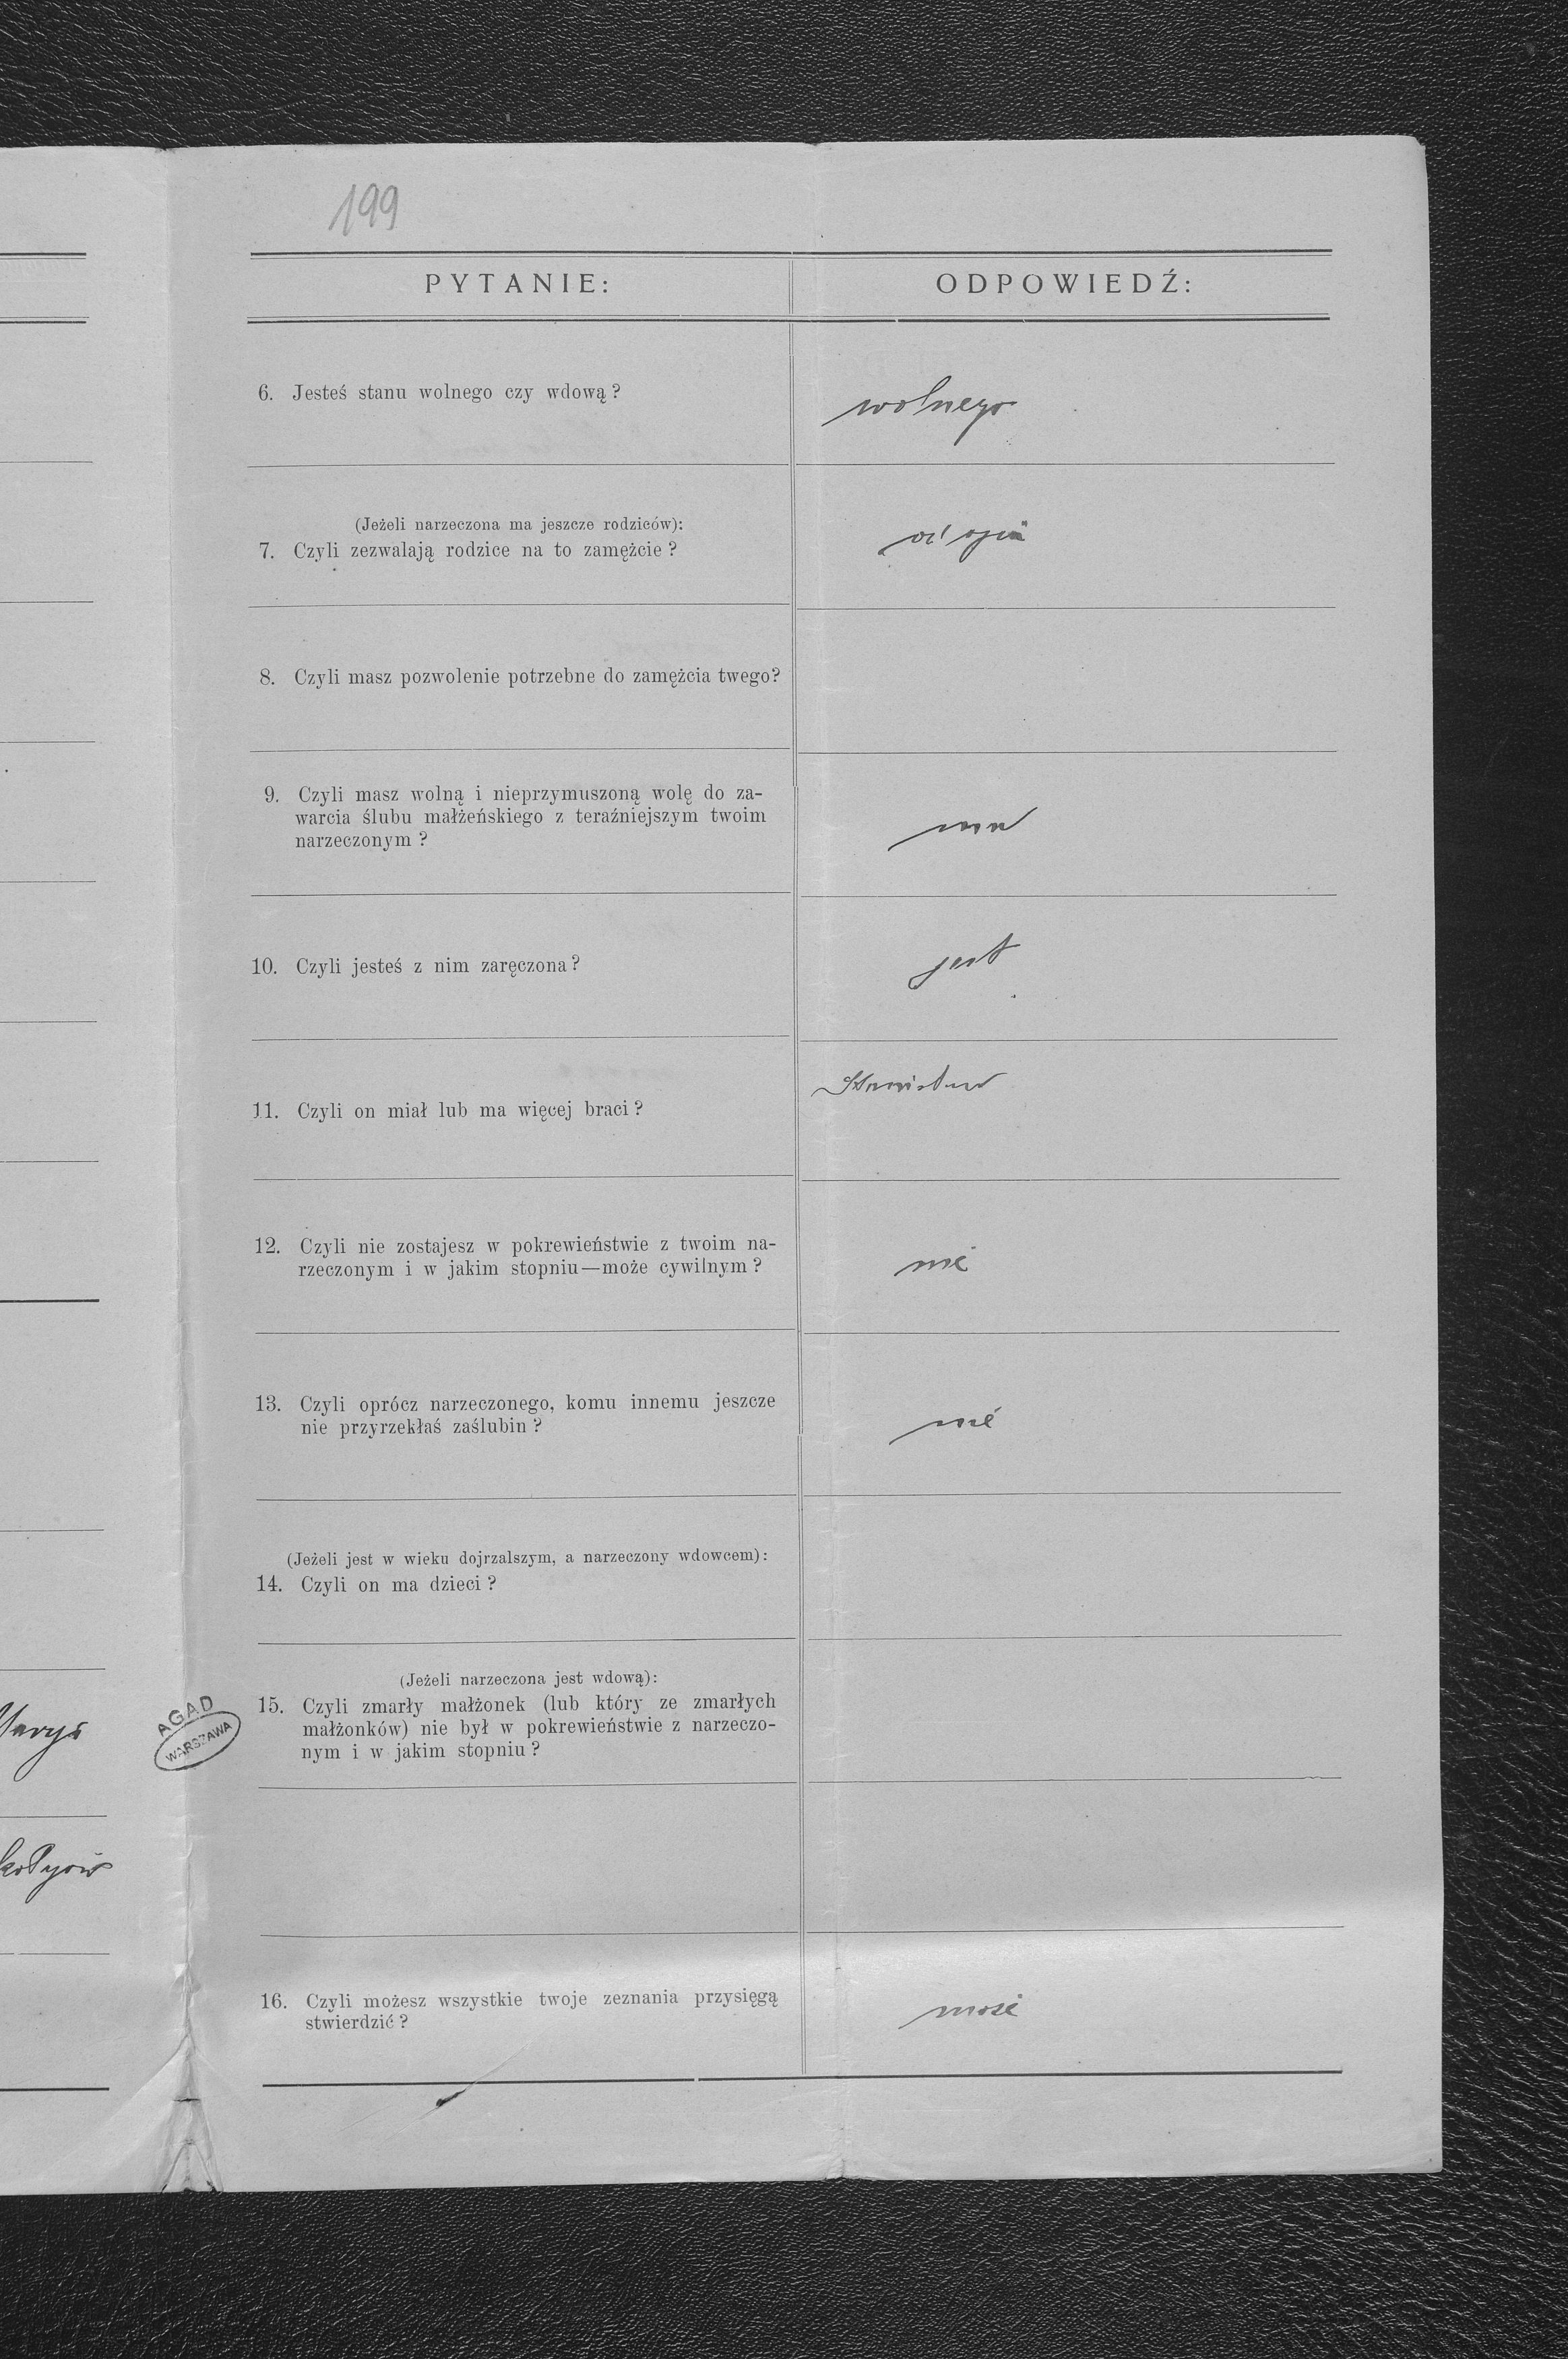 199
PYTANIE:
ODPOWIEDŹ:
6. Jesteś stanu wolnego czy wdową?
wolnego
(Jeżeli narzeczona ma jeszcze rodziców):
7. Czyli zezwalają rodzice na to zamężcie?
8. Czyli masz pozwolenie potrzebne do zamężcia twego?
9. Czyli masz wolną i nieprzymuszoną wolę do za-
warcia ślubu małżeńskiego z teraźniejszym twoim
narzeczonym?
ma
10. Czyli jesteś z nim zaręczona?
jest
11. Czyli on miał lub ma więcej braci?
Stanisław
12. Czyli nie zostajesz w pokrewieństwie z twoim na-
rzeczonym i w jakim stopniu—może cywilnym?
nie
13. Czyli oprócz narzeczonego, komu innemu jeszcze
nie przyrzekłaś zaślubin?
nie
(Jeżeli jest w wieku dojrzalszym, a narzeczony wdowcem):
14. Czyli on ma dzieci?
(Jeżeli narzeczona jest wdową):
15. Czyli zmarły małżonek (lub który ze zmarłych
małżonków) nie był w pokrewieństwie z narzeczo-
nym i w jakim stopniu?
AGAD
WARSZAWA
16. Czyli możesz wszystkie twoje zeznania przysięgą
stwierdzić?
może